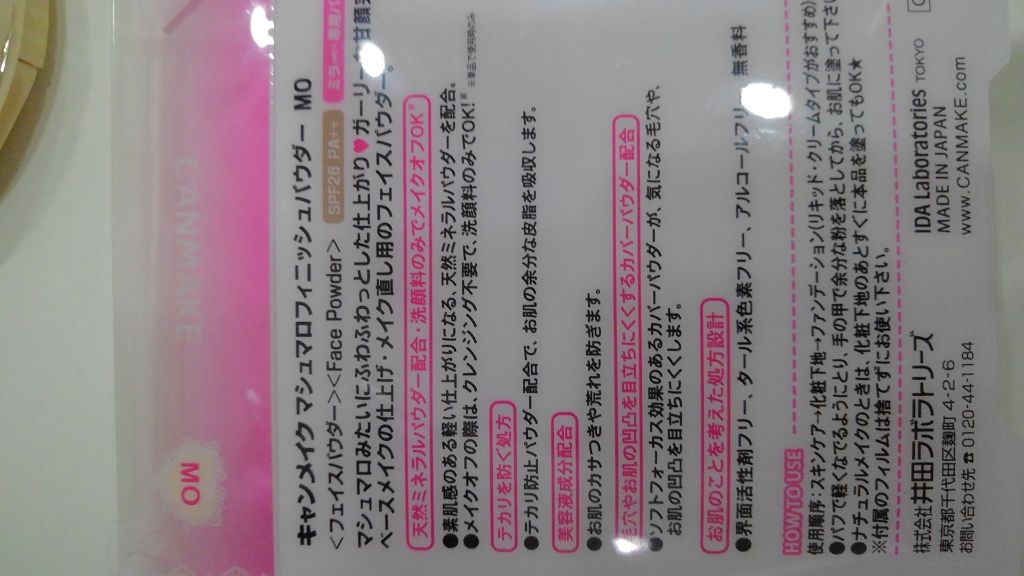 CANMAKE
MO
キャンメイク マシュマロフィニッシュパウダー MO
<フェイスパウダー><Face Powder> SPF26 PA++ ミラー・専用パ
マシュマロみたいにふわふわっとした仕上がり♥ガーリーな甘顔
ベースメイクの仕上げ・メイク直し用のフェイスパウダー。
天然ミネラルパウダー配合・洗顔料のみでメイクオフOK※
●素肌感のある軽い仕上がりになる、天然ミネラルパウダーを配合。
●メイクオフの際は、クレンジング不要で、洗顔料のみでOK!※ ※単品で使用時のみ
テカリを防ぐ処方
●テカリ防止パウダー配合で、お肌の余分な皮脂を吸収します。
美容液成分配合
●お肌のカサつきや荒れを防ぎます。
毛穴やお肌の凹凸を目立ちにくくするカバーパウダー配合
●ソフトフォーカス効果のあるカバーパウダーが、気になる毛穴や、
お肌の凹凸を目立ちにくくします。
お肌のことを考えた処方設計
●界面活性剤フリー、タール系色素フリー、アルコールフリー、無香料
HOW TO USE
使用順序:スキンケア→化粧下地→ファンデーション(リキッド・クリームタイプがおすすめ)
●パフで軽くなでるようにとり、手の甲で余分な粉を落としてから、お肌に塗って下さい
●ナチュラルメイクのときは、化粧下地のあとすぐに本品を塗ってもOK★
※付属のフィルムは捨てずにお使い下さい。
株式会社井田ラボラトリーズ
東京都千代田区麹町 4-2-6
お問い合わせ先 ☎0120-44-1184
IDA Laboratories TOKYO
MADE IN JAPAN
www.CANMAKE.com